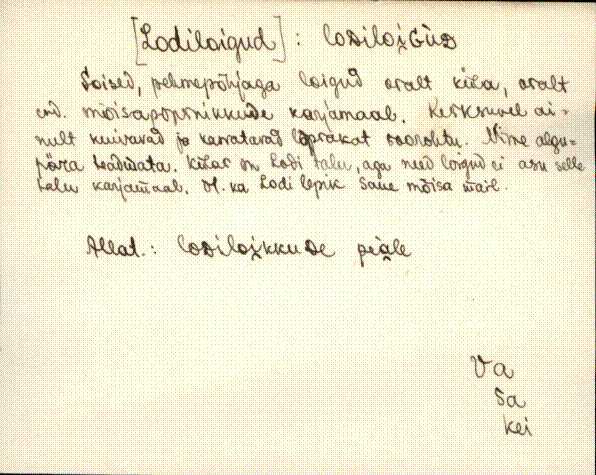 [Lodiloigud] : loDiloi̮GùD
Soised, pehmepõhjaga loigud osalt küla, osalt
end. mõisapopsnikkude karjamaal. Kesksuvel ai-
nult kuivavad ja kasvatavad lopsakat soorohtu. Nime algu-
pära teadmata. Külas on Lodi talu, aga need loigud ei asu selle
talu karjamaal. Vt. ka Lodi lepik Saue mõisa maal.
Allat.: loDiloi̮kkuDe peàle
Va
Sa
Kei